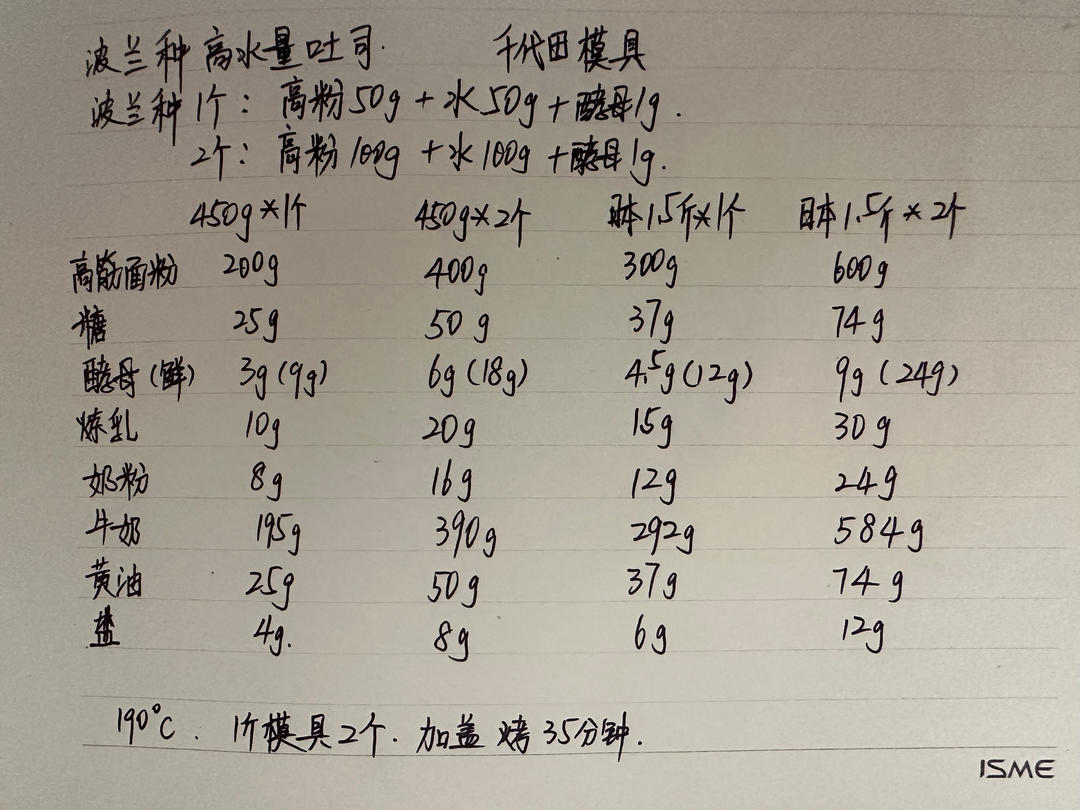 波兰种高水量吐司. 千代田模具
波兰种1个：高粉50g+水50g+酵母1g.
2个：高粉100g+水100g+酵母1g.
450g*1个 450g*2个 日本1.5斤*1个 日本1.5斤*2个
高筋面粉 200g 400g 300g 600g
糖 25g 50g 37g 74g
酵母(鲜) 3g(9g) 6g(18g) 4.5g(12g) 9g(24g)
炼乳 10g 20g 15g 30g
奶粉 8g 16g 12g 24g
牛奶 195g 390g 292g 584g
黄油 25g 50g 37g 74g
盐 4g. 8g 6g 12g
190°C. 1斤模具2个. 加盖 烤35分钟.
ISME